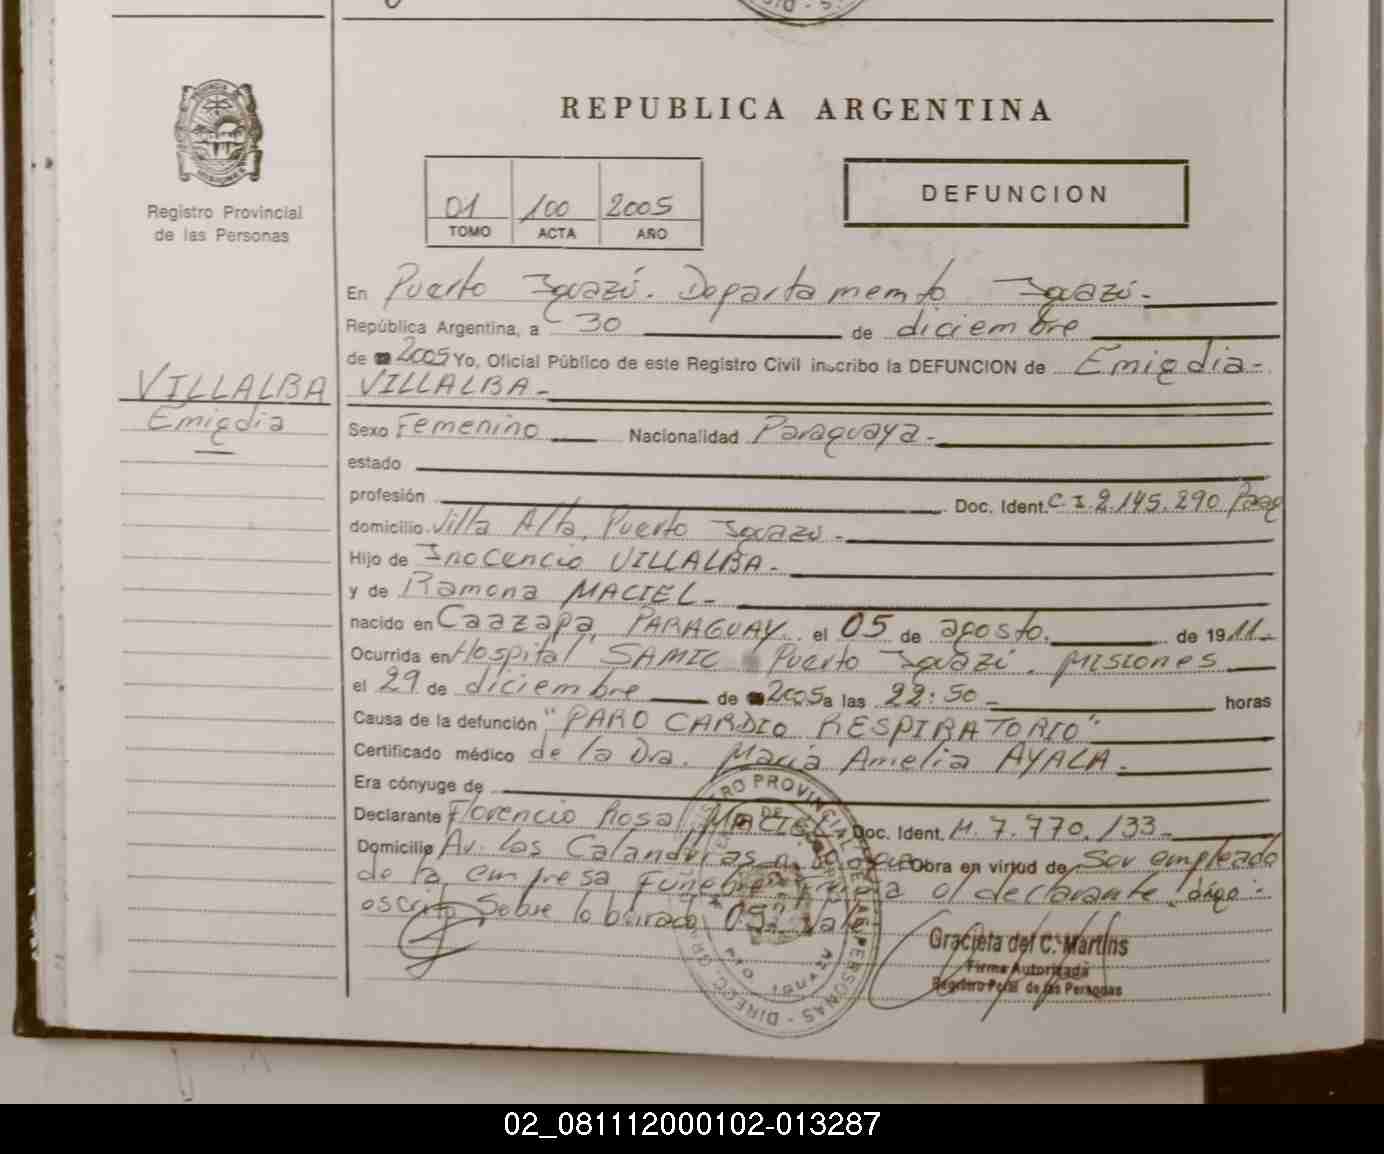 REPUBLICA ARGENTINA
Registro Provincial
de las Personas
01 100 2005
TOMO ACTA AÑO
DEFUNCION
En Puerto Iguazú. Departamento Iguazú.-
República Argentina, a 30 de diciembre
de 2005 Yo, Oficial Público de este Registro Civil inscribo la DEFUNCION de Emigdia-
VILLALBA.-
VILLALBA
Emigdia
Sexo Femenino Nacionalidad Paraguaya.-
estado
profesión Doc. Ident. C.I. 2.145.290. Parag
domicilio Villa Alta, Puerto Iguazú.-
Hijo de Inocencio VILLALBA.-
y de Ramona MACIEL.-
nacido en Caazapa, PARAGUAY. el 05 de agosto. de 1911.-
Ocurrida en Hospital SAMIC Puerto Iguazú. Misiones
el 29 de diciembre de 2005 a las 22:50- horas
Causa de la defunción "PARO CARDIO RESPIRATORIO"-
Certificado médico de la Dra. María Amelia AYALA.-
Era cónyuge de
Declarante Florencio Rosa MACIEL Doc. Ident. M. 7.770.133-
Domicilio Av. Los Calandrias Obra en virtud de Ser empleado
de la empresa Funebre el declarante. digo:-
escrito Sobre lo borrado 05. Vale
Gracieta del C. Martins
Firma Autorizada
Registro Pcial. de las Personas
REGISTRO PROVINCIAL DE LAS PERSONAS - DIRECC. GRAL.
PTO. IGUAZU
02_081112000102-013287